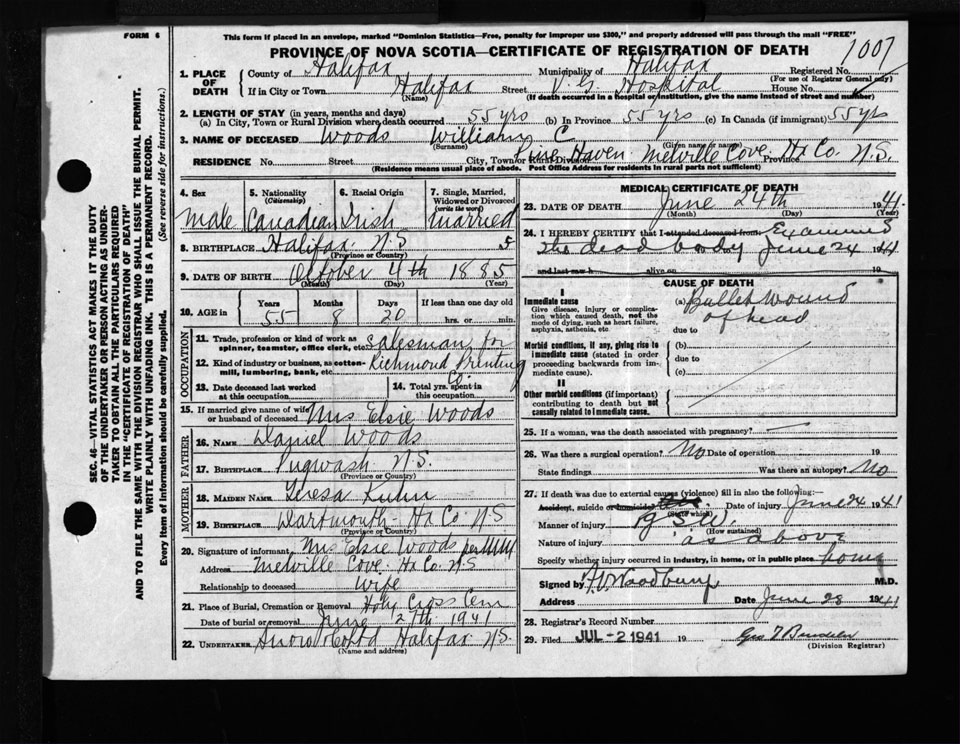 FORM 6
This form if placed in an envelope, marked "Dominion Statistics—Free, penalty for improper use $300," and properly addressed will pass through the mail "FREE"
PROVINCE OF NOVA SCOTIA—CERTIFICATE OF REGISTRATION OF DEATH
1007
1. PLACE OF DEATH
County of Halifax Municipality of Halifax Registered No.
(For use of Registrar General only)
If in City or Town Halifax Street V.G. Hospital House No.
(Name) (If death occurred in a hospital or institution, give the name instead of street and number)
2. LENGTH OF STAY (in years, months and days)
(a) In City, Town or Rural Division where death occurred 55 yrs (b) In Province 55 yrs (c) In Canada (if immigrant) 55 yrs
3. NAME OF DECEASED Woods William C.
(Surname) (Given name or names)
RESIDENCE No. Street City, Town or Rural Division Pine Haven Melville Cove Province Hx Co. N.S.
(Residence means usual place of abode. Post Office Address for residents in rural parts not sufficient)
4. Sex Male
5. Nationality (Citizenship) Canadian
6. Racial Origin Irish
7. Single, Married, Widowed or Divorced (write the word) Married
8. BIRTHPLACE Halifax N.S
(Province or Country)
9. DATE OF BIRTH October 4th 1885
(Month) (Day) (Year)
10. AGE in Years 55 Months 8 Days 20 If less than one day old hrs. or min.
OCCUPATION
11. Trade, profession or kind of work as spinner, teamster, office clerk, etc. Salesman for
12. Kind of industry or business, as cotton-mill, lumbering, bank, etc. Richmond Printing Co.
13. Date deceased last worked at this occupation
14. Total yrs. spent in this occupation
15. If married give name of wife or husband of deceased Mrs Elsie Woods
FATHER
16. NAME Daniel Woods
17. BIRTHPLACE Pugwash N.S.
(Province or Country)
MOTHER
18. MAIDEN NAME Teresa Kuhn
19. BIRTHPLACE Dartmouth - Hx Co. N.S
(Province or Country)
20. Signature of informant Mrs Elsie Woods per
Address Melville Cove Hx Co. N.S
Relationship to deceased Wife
21. Place of Burial, Cremation or Removal Holy Cross Cem
Date of burial or removal June 27th 1941
22. UNDERTAKER Snow Co Ltd Halifax N.S.
(Name and address)
MEDICAL CERTIFICATE OF DEATH
23. DATE OF DEATH June 24th 1941
(Month) (Day) (Year)
24. I HEREBY CERTIFY that I attended deceased from Examined
the dead body June 24 1941
and last saw h alive on 19
CAUSE OF DEATH
I
Immediate cause
Give disease, injury or complication which caused death, not the mode of dying, such as heart failure, asphyxia, asthenia, etc.
(a) Bullet Wound
of head
due to
Morbid conditions, if any, giving rise to immediate cause (stated in order proceeding backwards from immediate cause).
(b)
due to
(c)
II
Other morbid conditions (if important) contributing to death but not causally related to immediate cause.
25. If a woman, was the death associated with pregnancy?
26. Was there a surgical operation? No Date of operation 19
State findings Was there an autopsy? No
27. If death was due to external causes (violence) fill in also the following:—
Accident, suicide or homicide? (State which) Date of injury June 24 1941
Manner of injury G.S.W.
(How sustained)
Nature of injury as above
Specify whether injury occurred in industry, in home, or in public place home
Signed by M.D.
Address Date June 28 1941
28. Registrar's Record Number
29. Filed JUL - 2 1941 19
(Division Registrar)
SEC. 46—VITAL STATISTICS ACT MAKES IT THE DUTY
OF THE UNDERTAKER OR PERSON ACTING AS UNDERTAKER TO OBTAIN ALL THE PARTICULARS REQUIRED
IN THE "CERTIFICATE OF REGISTRATION OF DEATH"
AND TO FILE THE SAME WITH THE DIVISION REGISTRAR WHO SHALL ISSUE THE BURIAL PERMIT.
WRITE PLAINLY WITH UNFADING INK. THIS IS A PERMANENT RECORD.
Every item of Information should be carefully supplied. (See reverse side for instructions.)